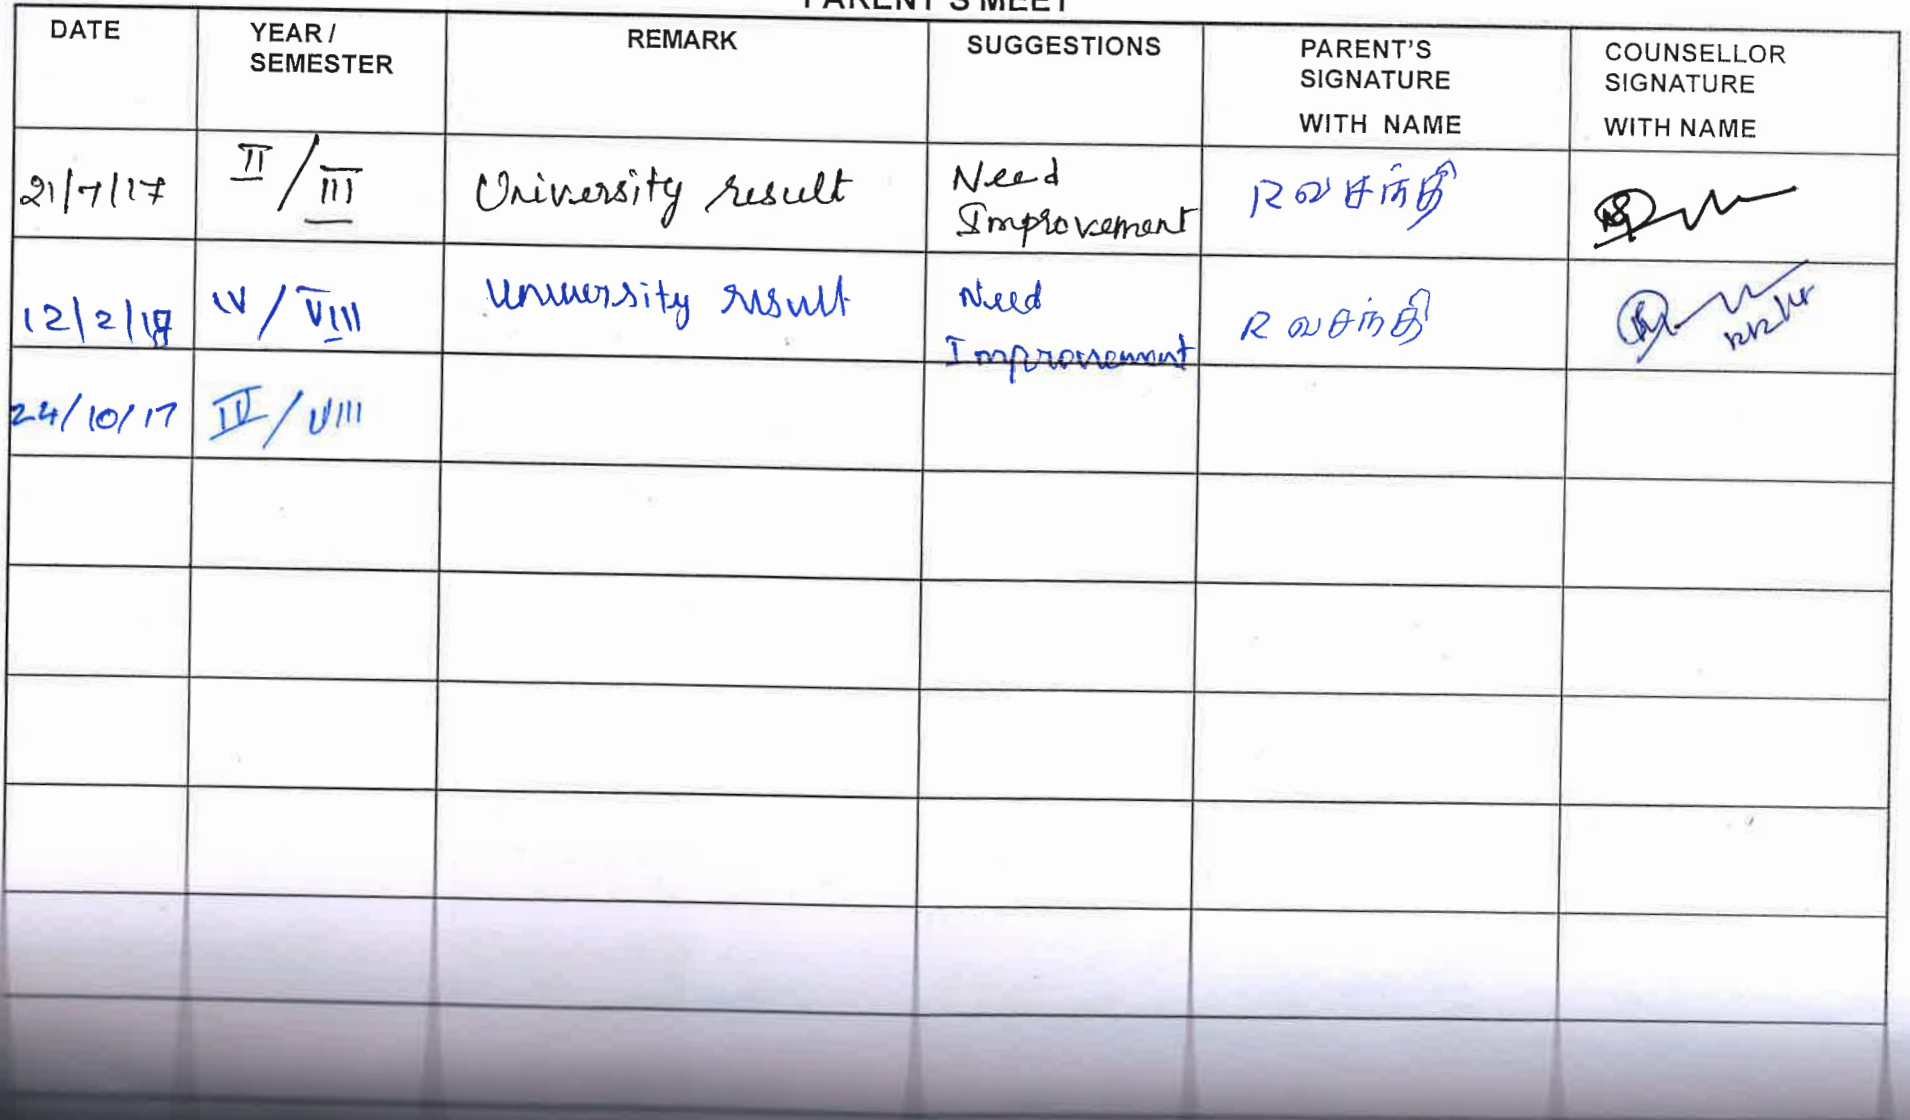 PARENT'S MEET
DATE YEAR / SEMESTER REMARK SUGGESTIONS PARENT'S SIGNATURE WITH NAME COUNSELLOR SIGNATURE WITH NAME
21/7/17 II / III University result Need Improvement R வசந்தி
12/2/18 IV / VIII University result Need Improvement R வசந்தி 12/2/18
24/10/17 IV / VIII